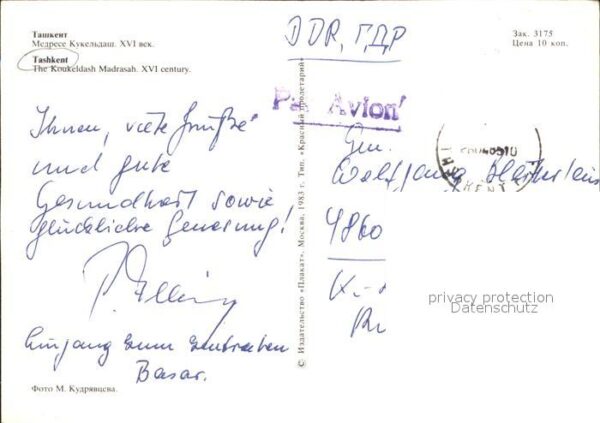 Ташкент
Медресе Кукельдаш. XVI век.
Tashkent
The Koukeldash Madrasah. XVI century.
Зак. 3175
Цена 10 коп.
DDR, ГДР
Par Avion
Ihnen, viele Grüße
und gute
Gesundheit sowie
glückliche Genesung!
Eingang zum zentralen
Basar.
Gen.
Wolfgang
4860
privacy protection
Datenschutz
© Издательство «Плакат». Москва. 1983 г. Тип. «Красный пролетарий»
Фото М. Кудрявцева.